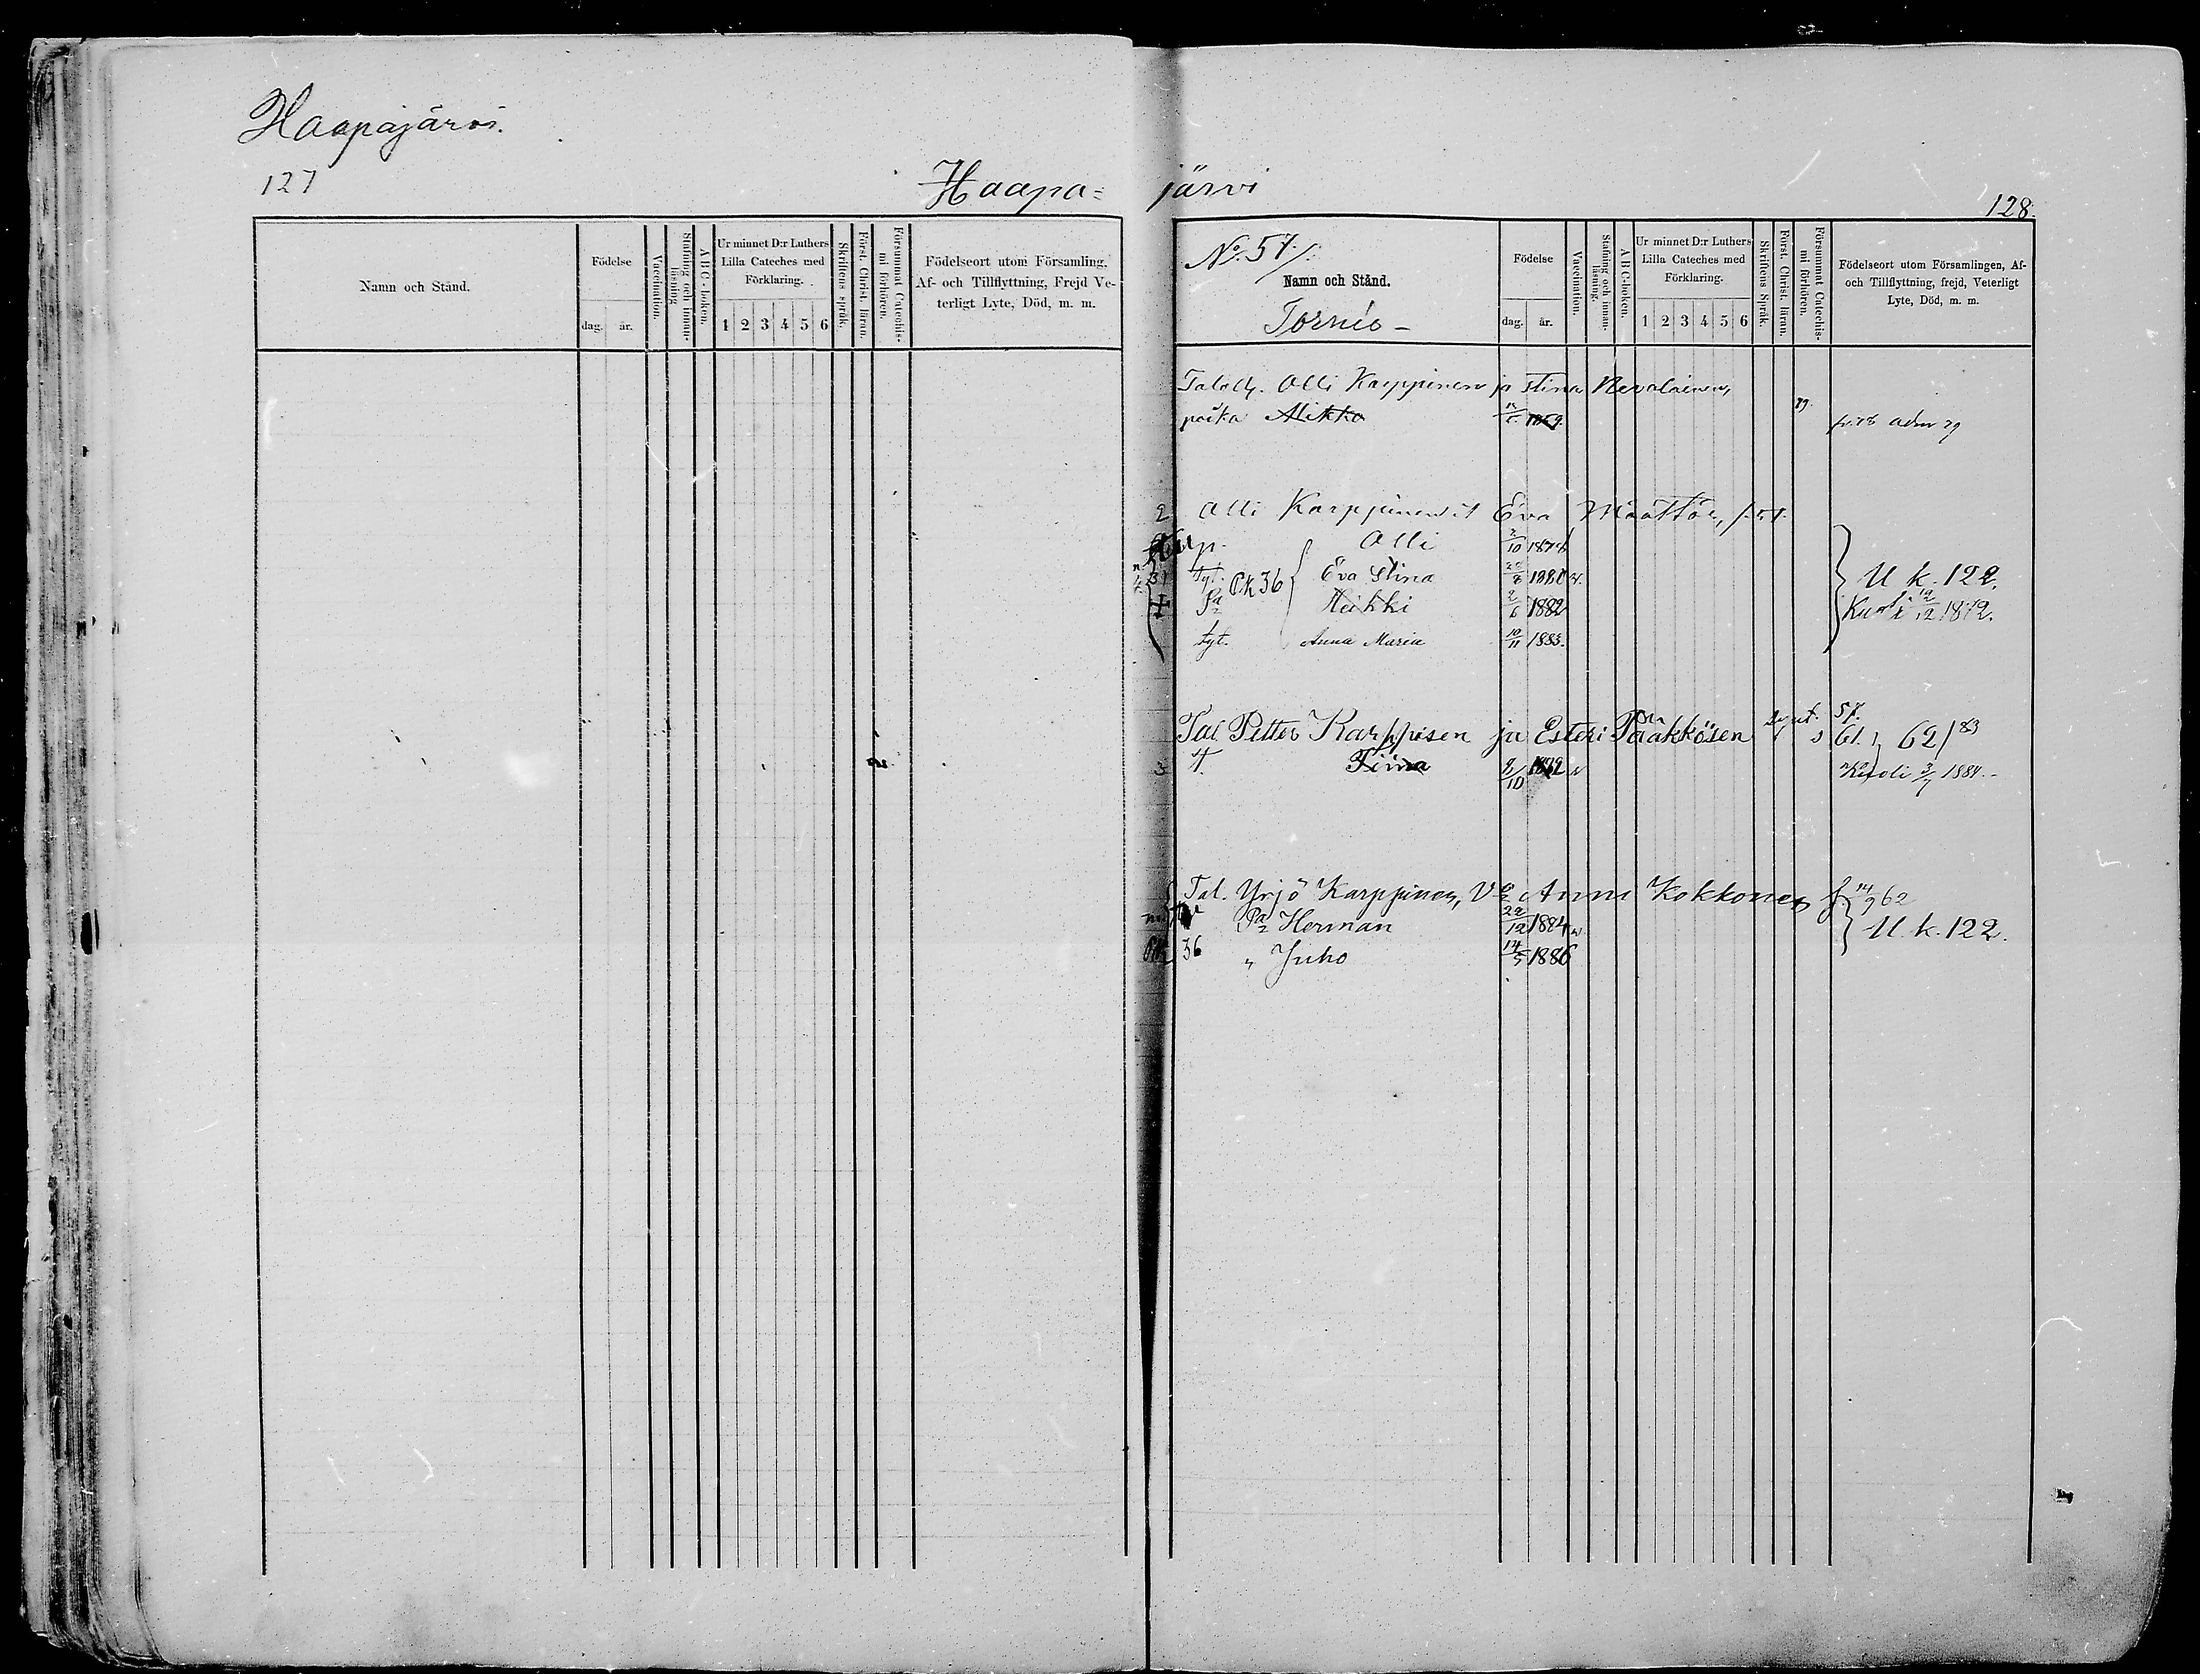 Haapajärvi.
127
Haapa=
järvi
128.
Namn och Stånd.
Födelse
dag. år.
Vaccination.
Stafning och innan-läsning.
ABC-boken.
Ur minnet D:r Luthers Lilla Cateches med Förklaring.
1 2 3 4 5 6
Skriftens språk.
Först. Christ. läran.
Försummat Catechis-mi förhören.
Födelseort utom Församling, Af- och Tillflyttning, Frejd Veterligt Lyte, Död, m. m.
No. 57/.
Namn och Stånd.
Tornio -
Födelse
dag. år.
Vaccination.
Stafning och innan-läsning.
ABC-boken.
Ur minnet D:r Luthers Lilla Cateches med Förklaring.
1 2 3 4 5 6
Skriftens Språk.
Först. Christ. läran.
Försummat Catechis-mi förhören.
Födelseort utom Församlingen, Af- och Tillflyttning, frejd, Veterligt Lyte, Död, m. m.
Olli Karppinen ja Stina Nevalainen,
poika Mikko 1869. adm 79
2 Olli Karppinen it Eva Määttär,
p. Olli 2/10 1878
tyt. Pk 36 Eva Stina 1880 v. U. k. 122.
Heikki 2/6 1882 Kuoli 1872.
tyt. Anna Maria 10/11 1883.
Tal Petter Karppisen ja Esteri Pääkkösen 57. 61. 62/83
3 T. Tiina 8/10 1872 v Kuoli 3/7 1884.-
Tal. Yrjö Karppinen, Vo Anni Kokkonen f. 14/9 62
Pa Herman 22/12 1884 v. U. k. 122.
36 " Juho 14/5 1886